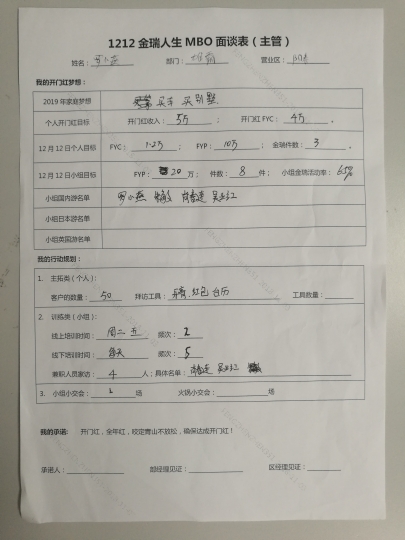 1212 金瑞人生 MBO 面谈表（主管）
姓名： 部门： 营业区：
我的开门红梦想：
2019 年家庭梦想 买车 买别墅
个人开门红目标 开门红收入： 5万 ； 开门红 FYC： 4万 。
12 月 12 日个人目标 FYC： 1.2万 ； FYP： 10万 ； 金瑞件数： 3 。
12 月 12 日小组目标 FYP： 20 万； 件数： 8 件； 小组金瑞活动率： 65%
小组国内游名单 罗小燕
小组日本游名单
小组英国游名单
我的行动规划：
1. 主拓类（个人）：
客户的数量： 50 拜访工具： 红包 台历 工具数量：
2. 训练类（小组）：
线上培训时间： 周二 五 频次： 2
线下培训时间： 每天 频次： 5
兼职人员家访： 4 人；具体名单：
3. 小组小交会： 2 场 火锅小交会： 场
我的承诺： 开门红，全年红，咬定青山不放松，确保达成开门红！
承诺人： 部经理见证： 区经理见证：